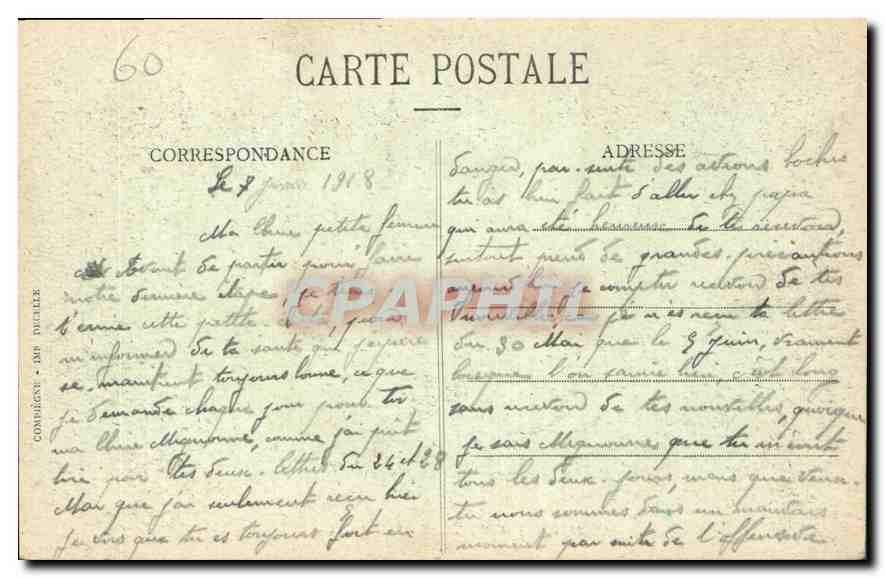 60
CARTE POSTALE
CORRESPONDANCE
Le 7 juin 1918
Ma chere petite femme
Avant de partir pour faire
notre derniere étape, je
t'ecrire cette petite pour
m'informer de ta santé qui j'espere
se maintient toujours bonne, ce que
je demande chaque jour pour toi
ma chere Mignonne, comme j'ai put
lire par tes deux lettres du 24 et 28
Mai que j'ai seulement recu hier
Je vois que tu es toujours fort en
ADRESSE
danger, par suite des avions boches
tu as bien fait d'aller chez papa
qui aura été heureux de te recevoir,
surtout prend de grandes précautions
aujourd'hui je compter recevoir de tes
nouvelles, je n'ai recu ta lettre
du 30 Mai que le 5 Juin, vraiment
lorsque l'on s'aime bien, c'est long
sans recevoir de tes nouvelles, quoique
je sais Mignonne que tu m'ecrit
tous les deux jours, mais que veux-
tu nous sommes dans un mauvais
moment par suite de l'offensive
COMPIÈGNE - IMP. DECELLE
CPAPHIL